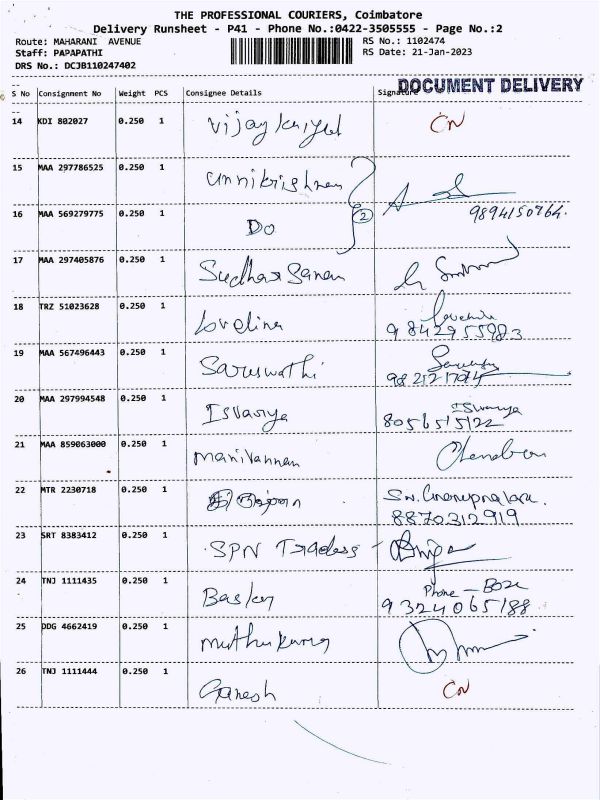 THE PROFESSIONAL COURIERS, Coimbatore
Delivery Runsheet - P41 - Phone No.:0422-3505555 - Page No.:2
Route: MAHARANI AVENUE RS No.: 1102474
Staff: PAPAPATHI RS Date: 21-Jan-2023
DRS No.: DCJB110247402
DOCUMENT DELIVERY
S No Consignment No Weight PCS Consignee Details Signature
14 KDI 802027 0.250 1 CN
15 MAA 297786525 0.250 1 Unnikrishnan
16 MAA 569279775 0.250 1 Do 2 9894150764.
17 MAA 297405876 0.250 1 Sudharsanan
18 TRZ 51023628 0.250 1 Loveline
9842955983
19 MAA 567496443 0.250 1 Saruswathi
20 MAA 297994548 0.250 1 Isvarya Iswarya
8056515122
21 MAA 859063000 0.250 1 Manivannan
22 MTR 2230718 0.250 1
8870312919
23 SRT 8383412 0.250 1 SPN Traders
24 TNJ 1111435 0.250 1 Baskey Phone - Bose
9324065188
25 DDG 4662419 0.250 1
26 TNJ 1111444 0.250 1 Ganesh CN